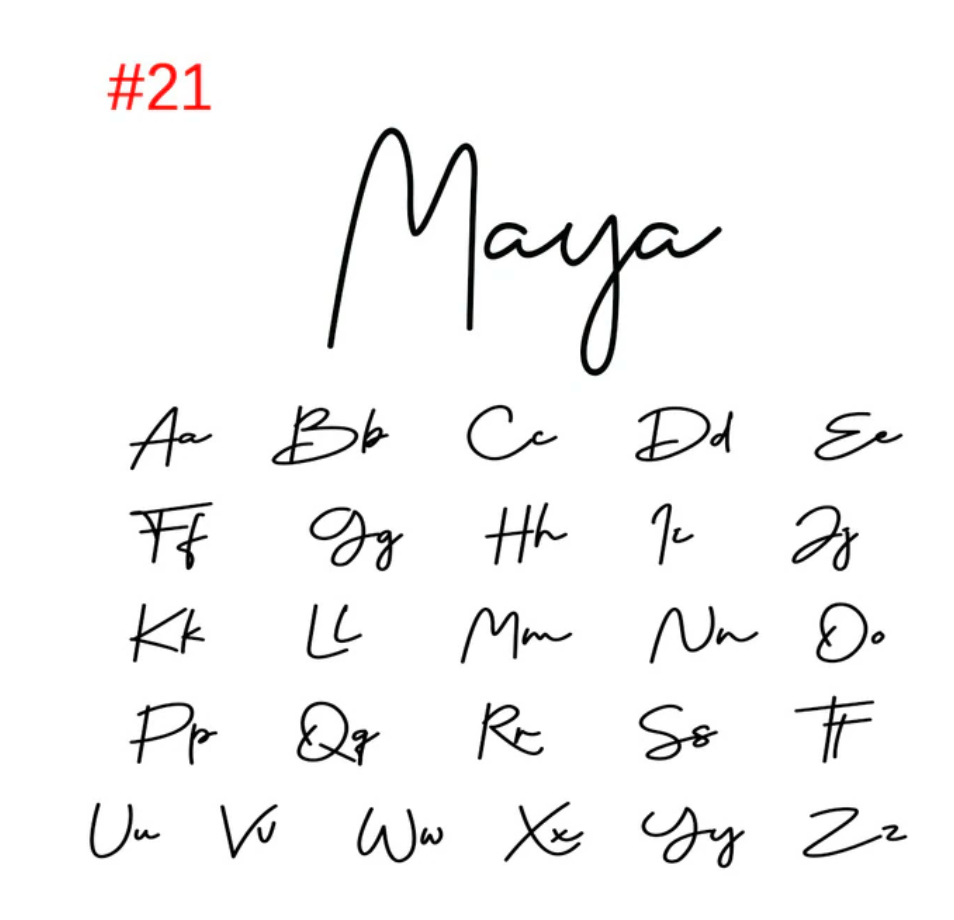 #21
Maya
Aa Bb Cc Dd Ee
Ff Gg Hh Ii Jj
Kk Ll Mm Nn Oo
Pp Qq Rr Ss Tt
Uu Vv Ww Xx Yy Zz